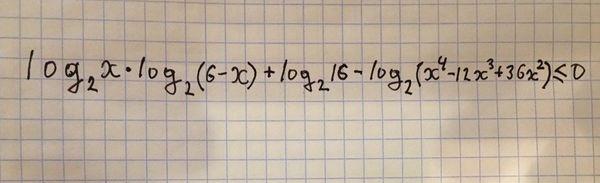 log₂x·log₂(6-x)+log₂16-log₂(x⁴-12x³+36x²)≤0